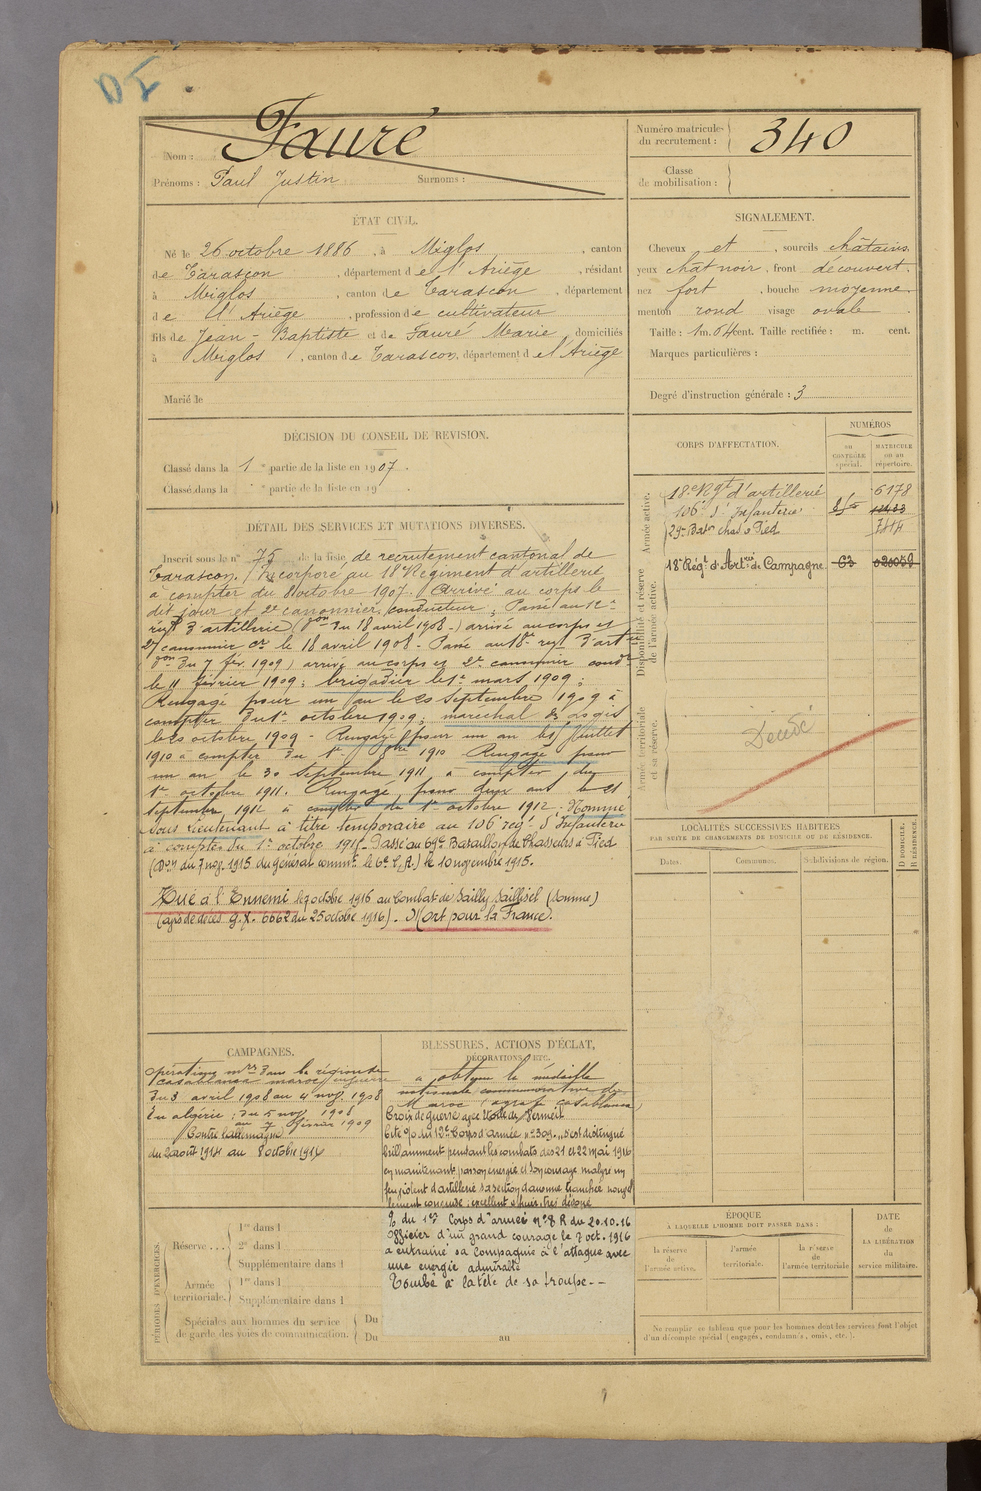 DI
Nom : Fauré
Prénoms : Paul Justin Surnoms :
Numéro matricule du recrutement : 340
Classe de mobilisation :
ÉTAT CIVIL.
Né le 26 octobre 1886, à Miglos, canton
de Tarascon, département de l'Ariège, résidant
à Miglos, canton de Tarascon, département
de l'Ariège, profession de cultivateur
fils de Jean-Baptiste et de Fauré Marie, domiciliés
à Miglos, canton de Tarascon, département de l'Ariège
Marié le
SIGNALEMENT.
Cheveux et, sourcils châtains
yeux chât noir, front découvert.
nez fort, bouche moyenne
menton rond visage ovale
Taille : 1 m. 64 cent. Taille rectifiée : m. cent.
Marques particulières :
Degré d'instruction générale : 3
DÉCISION DU CONSEIL DE REVISION.
Classé dans la 1e partie de la liste en 1907.
Classé dans la e partie de la liste en 19
DÉTAIL DES SERVICES ET MUTATIONS DIVERSES.
Inscrit sous le n° 75 de la liste de recrutement cantonal de
Tarascon. Incorporé au 18e Régiment d'artillerie
à compter du 8 octobre 1907. Arrivé au corps le
dit jour et 2e canonnier conducteur. Passé au 12e
régt d'artillerie (Don du 18 avril 1908) arrivé au corps et
2e canonnier cr le 18 avril 1908. Passé au 18e régt d'art
(Don du 7 fév 1909) arrivé au corps et 2e canonnier condr
le 11 février 1909; brigadier le 1er mars 1909;
Rengagé pour un an le 20 septembre 1909 à
compter du 1er octobre 1909; maréchal des logis
le 20 octobre 1909 - Rengagé pour un an le juillet
1910 à compter du 1er 8bre 1910 Rengagé pour
un an le 30 septembre 1911 à compter du
1er octobre 1911. Rengagé pour deux ans le 21
septembre 1912 à compter du 1er octobre 1912. Nommé
sous lieutenant à titre temporaire au 106e rég. d'Infanterie
à compter du 1er octobre 1915. Passé au 69e Bataillon de Chasseurs à Pied
(Don du 7 nov. 1915 du général commt le 6e C.A.) le 10 novembre 1915.
Tué à l'Ennemi le 7 octobre 1916 au Combat de Sailly Saillisel (Somme)
(avis de décès G.X. 6662 du 25 octobre 1916). Mort pour la France.
CORPS D'AFFECTATION.
NUMÉROS
AU CONTRÔLE spécial.
MATRICULE ou au répertoire.
Armée active.
18e Rgt d'artillerie 6178
106e d'Infanterie
29e Baton chas à Pied
Disponibilité et réserve de l'armée active.
18e Régt d'Artrie de Campagne 63 020050
Armée territoriale et sa réserve.
Décédé
LOCALITÉS SUCCESSIVES HABITÉES
PAR SUITE DE CHANGEMENTS DE DOMICILE OU DE RÉSIDENCE.
Dates. Communes. Subdivisions de région. D DOMICILE. R RÉSIDENCE.
CAMPAGNES.
Opérations mres dans la région de
Casablanca maroc en guerre
du 3 avril 1908 au 4 nov. 1908
En algérie : du 5 nov 1908
au 7 février 1909
Contre l'allemagne
du 2 août 1914 au 8 octobre 1916
BLESSURES, ACTIONS D'ÉCLAT, DÉCORATIONS, ETC.
a obtenu la médaille
nationale commémorative du
Maroc (agrafe casablanca)
Croix de guerre avec étoile de Vermeil
Cité %o du 12e Corps d'armée n° 309. "s'est distingué
brillamment pendant les combats des 21 et 22 mai 1916
en maintenant par son énergie et son courage malgré un
feu violent d'artillerie sa section dans une tranchée nouvel
lement conquise, excellent officier, très dévoué
% du 1er Corps d'armée n° 8 R du 20.10.16
Officier d'un grand courage le 7 oct. 1916
a entrainé sa Compagnie à l'attaque avec
une énergie admirable
Tombé à la tête de sa troupe.--
PÉRIODES D'EXERCICES.
Réserve ... 1re dans l
2e dans l
Supplémentaire dans l
Armée territoriale. 1re dans l
Supplémentaire dans l
Spéciales aux hommes du service de garde des voies de communication. Du
Du au
ÉPOQUE
À LAQUELLE L'HOMME DOIT PASSER DANS :
la réserve de l'armée active.
l'armée territoriale.
la réserve de l'armée territoriale
DATE
DE
LA LIBÉRATION
du
service militaire.
Ne remplir ce tableau que pour les hommes dont les services font l'objet
d'un décompte spécial (engagés, condamnés, omis, etc.).